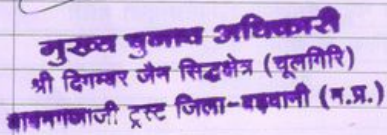 मुख्य चुनाव अधिकारी
श्री दिगम्बर जैन सिद्धक्षेत्र (चूलगिरि)
बावनगजाजी ट्रस्ट जिला-बड़वानी (म.प्र.)